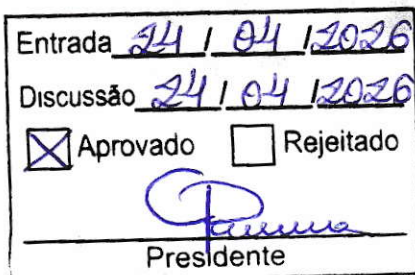 Entrada 24 / 04 / 2026
Discussão 24 / 04 / 2026
Aprovado Rejeitado
Presidente